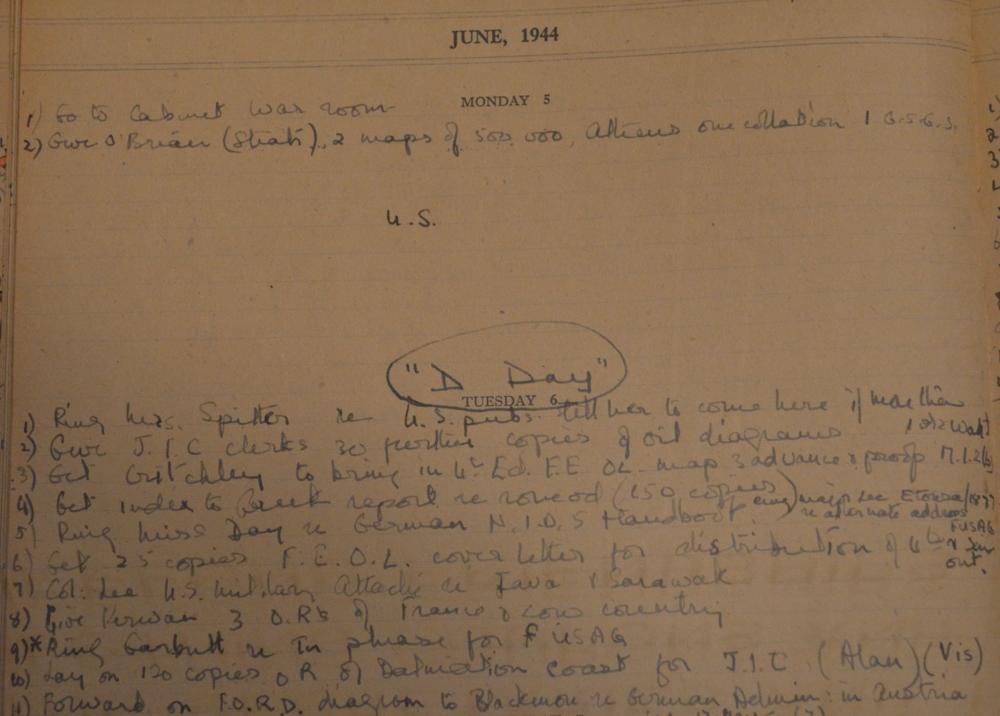 JUNE, 1944
MONDAY 5
1) Go to Cabinet War room
2) Give O'Brian (Strati), 2 maps of 500,000, Athens one collation 1 G.S.G.S.
U.S.
"D Day"
TUESDAY 6
1) Ring Mrs. Spitter re U.S. pubs. tell her to come here if more than 1 or 2 want
2) Give J.I.C clerks 30 further copies of oil diagrams
3) Get Critchley to bring in 4th Ed. F.E OL map 3 advance proof M.I.2(b)
4) Get index to report re (150 copies)
major Lee
re alternate address
5) Ring Miss Day re German N.I.D. 5 Handbook
FUSAG
6) Get 25 copies F.E.O.L. cover letter for distribution of 4th
out.
7) Col. Lee U.S. military Attache re Java & Sarawak
8) Give Kirwan 3 O.R's of France & low country
9)* Ring Garbutt re In phase for FUSAG
10) Lay on 120 copies OR of Dalmatian Coast for J.I.C (Alan) (Vis)
11) Forward on F.O.R.D. diagram to Blackmon re German Admin: in Austria